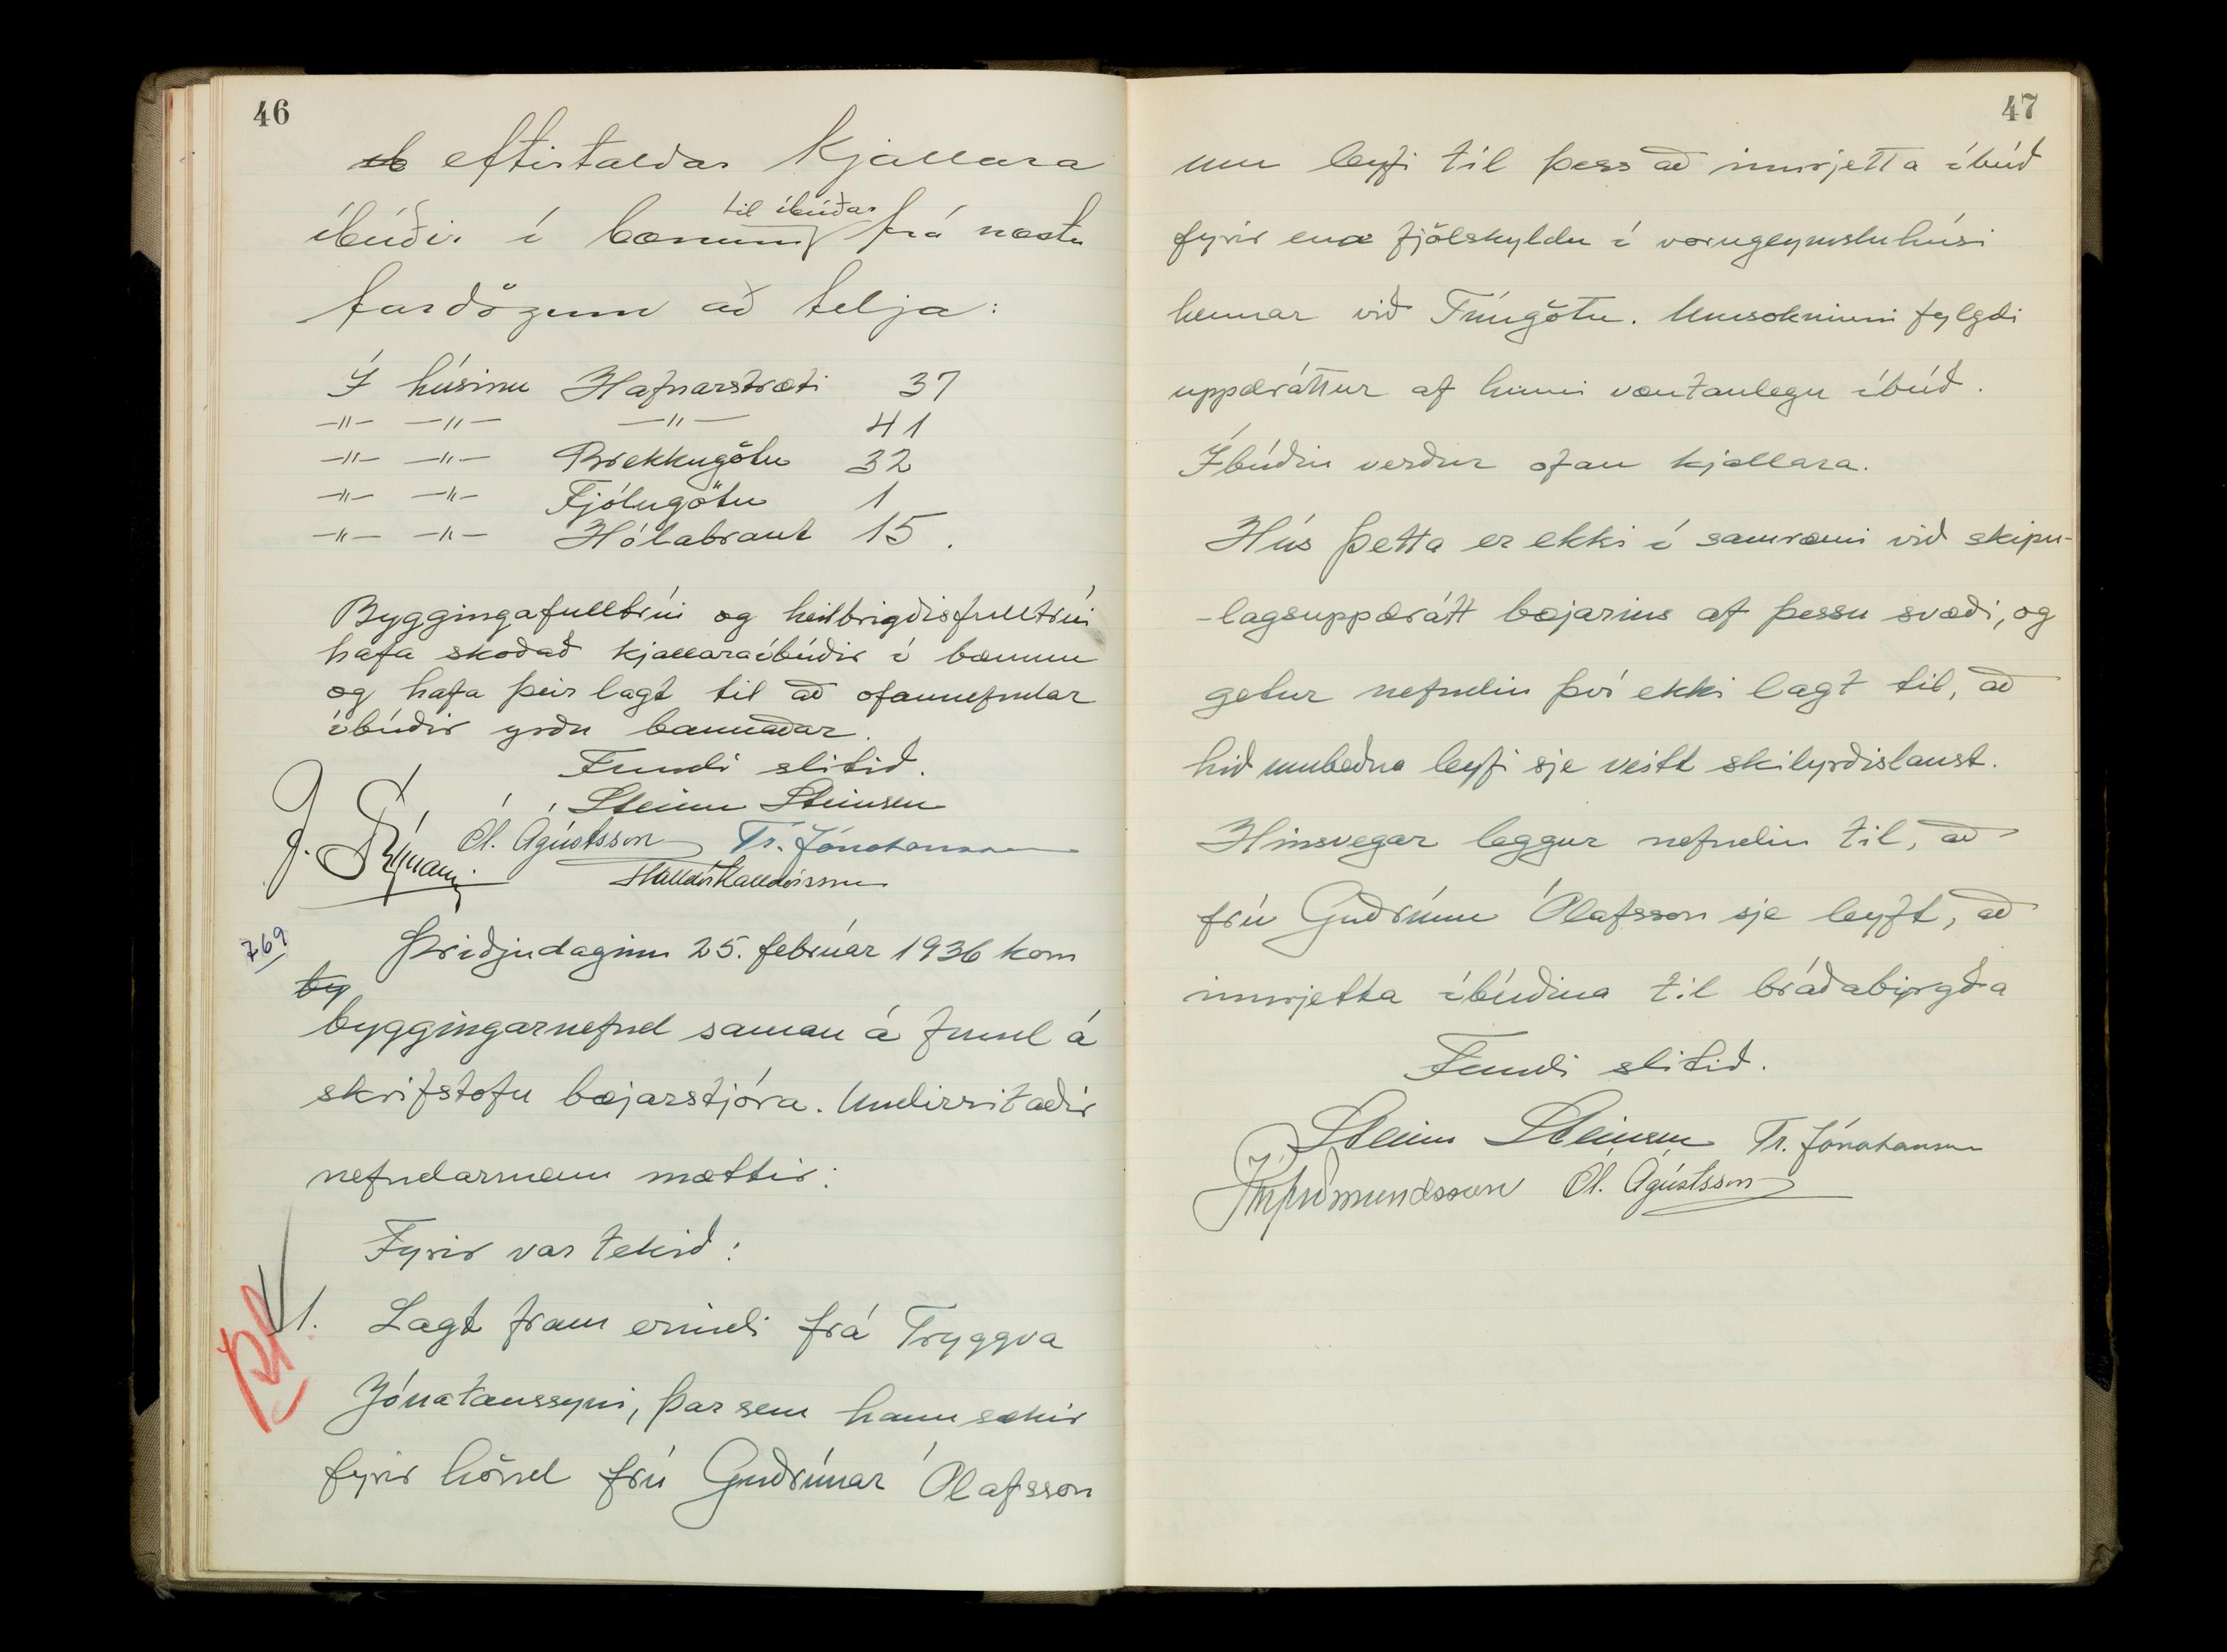 46
eftirtaldar kjallara
til íbúðar
íbúðir í bænum frá næstu
fardögum að telja:
Í húsinu Hafnarstræti 37
-"- -"- -"- 41
-"- -"- Brekkugötu 32
-"- -"- Fjólugötu 1
-"- -"- Hólabraut 15.
Byggingafulltrúi og heilbrigðisfulltrúi
hafa skoðað kjallaraíbúðir í bænum
og hafa þeir lagt til að ofannefndar
íbúðir yrðu bannaðar.
Fundi slitið.
Steinn Steinsen
Ól. Ágústsson Tr. Jónatansson
Halldór Halldórsson
769
Þriðjudaginn 25. febrúar 1936 kom
by
byggingarnefnd saman á fund á
skrifstofu bæjarstjóra. Undirritaðir
nefndarmenn mættir:
Fyrir var tekið:
1. Lagt fram erindi frá Tryggva
Jónatanssyni, þar sem hann sækir
fyrir hönd frú Guðrúnar Ólafsson
47
um leyfi til þess að innrjetta íbúð
fyrir eina fjölskyldu í vörugeymsluhúsi
hennar við Túngötu. Umsókninni fylgdi
uppdráttur af hinni væntanlegu íbúð.
Íbúðin verður ofan kjallara.
Hús þetta er ekki í samræmi við skipu-
-lagsuppdrátt bæjarins af þessu svæði, og
getur nefndin því ekki lagt til, að
hið umbeðna leyfi sje veitt skilyrðislaust.
Hinsvegar leggur nefndin til, að
frú Guðrúnu Ólafsson sje leyft, að
innrjetta íbúðina til bráðabyrgða
Fundi slitið.
Steinn Steinsen Tr. Jónatansson
Ól. Ágústsson